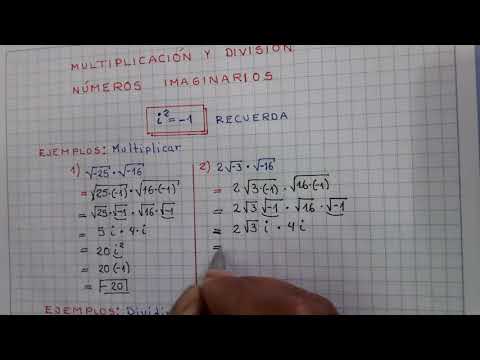 MULTIPLICACIÓN Y DIVISIÓN
NÚMEROS IMAGINARIOS
i² = -1 RECUERDA
EJEMPLOS: Multiplicar
1) √-25 · √-16
= √25·(-1) · √16·(-1)
= √25 · √-1 · √16 · √-1
= 5 i · 4 · i
= 20 i²
= 20 (-1)
= -20
2) 2√-3 · √-16
= 2√3·(-1) · √16·(-1)
= 2√3 √-1 · √16 · √-1
= 2√3 i · 4 i
=
EJEMPLOS: